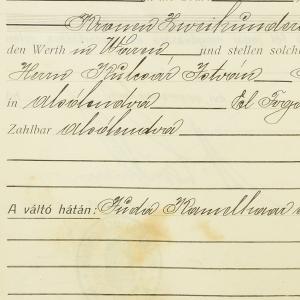 Kronen Zweihundert
den Werth in Waren und stellen solche
Herrn Kulcsár István
in Alsólendva
Zahlbar Alsólendva
A váltó hátán: Juda Kamelhaar